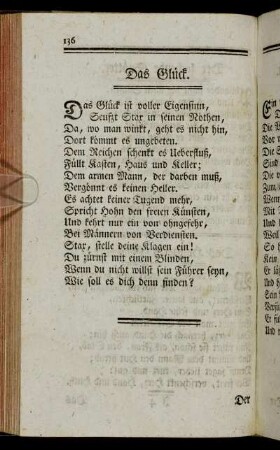 136
Das Glück.
Das Glück ist voller Eigensinn,
Seufzt Star in seinen Nöthen,
Da, wo man winkt, geht es nicht hin,
Dort kömmt es ungebeten.
Dem Reichen schenkt es Ueberfluß,
Füllt Kasten, Haus und Keller;
Dem armen Mann, der darben muß,
Vergönnt es keinen Heller.
Es achtet keiner Tugend mehr,
Spricht Hohn den freyen Künsten,
Und kehrt nur ein von ohngefehr,
Bey Männern von Verdiensten.
Star, stelle deine Klagen ein!
Du zürnst mit einem Blinden,
Wenn du nicht willst sein Führer seyn,
Wie soll es dich denn finden?
Der